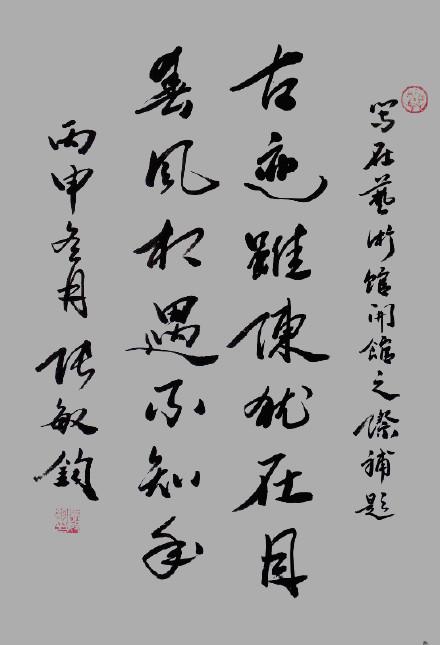 寫在藝術館開館之際補題
古迹雖陳犹在目
春風相遇不知年
丙申冬月 張敏鈞